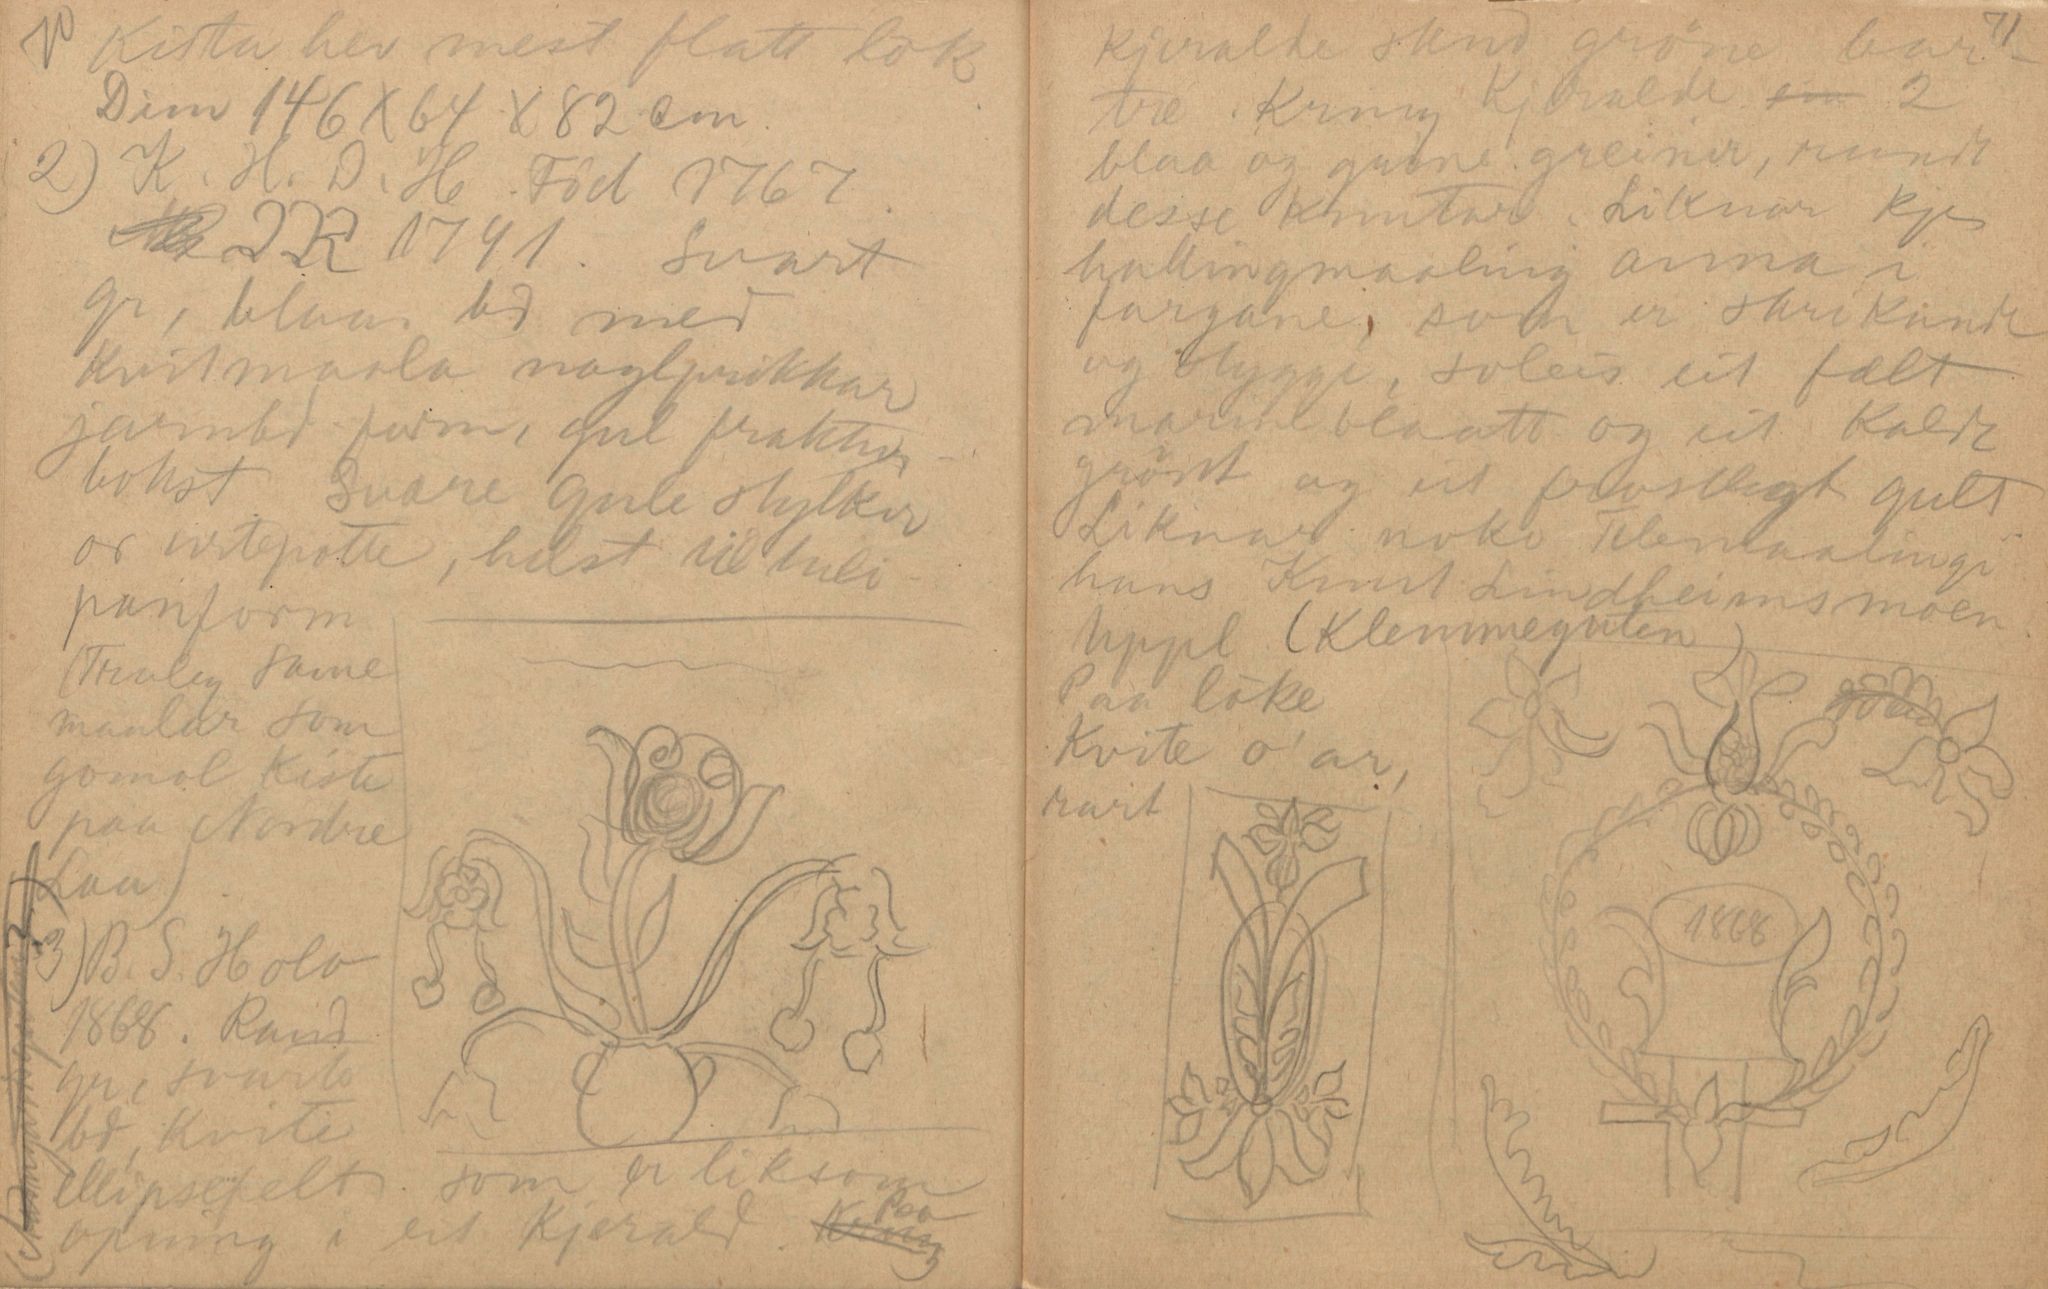 70
Kista hev mest flatt lok
Dim 146 X 64 X 82 cm.
2) K. H. D. H. Föd 1767.
1791. Svart
gr, blaa bd med
Kvitmaala naglprikkar
jarnbd form, gul fraktur-
bokst Svære gule stylkar
or urtepotte, helst til tuli-
panform
(Truleg same
maalar som
gomol kiste
paa Nordre
Laa)
3) B. S. Holo
1868. Raud
gr, svarte
bd, kvite
ellipsefelt som er liksom
opning i eit Kjerald. Paa
71
Kjeralde stend gröne bar-
tre. Kring Kjeralde 2
blaa og gröne greiner, rundt
desse Knutar. Liknar kje
hallingmaaling anna i
fargane, som er skrikande
og stygge, soleis eit fælt
marineblaatt og eit kaldt
grönt og eit gult
Liknar noko Telemaalingi
hans Knut Lindheimsmoen
Uppl (Klemmeguten)
Paa loke
Kvite o'ar,
rart
1868